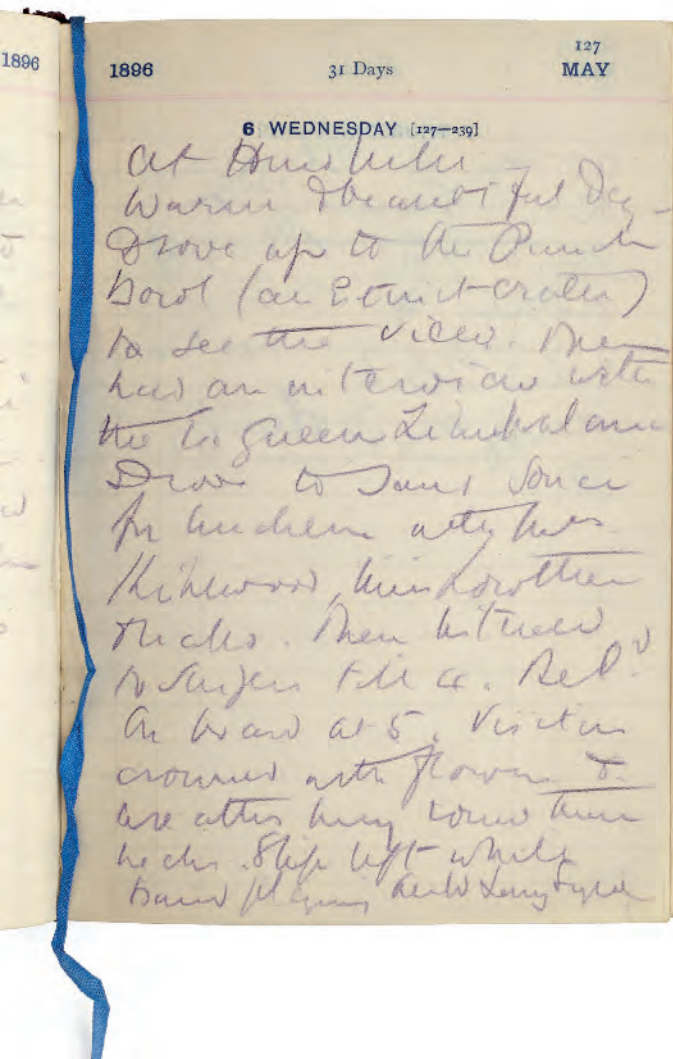 1896
1896
31 Days
127
MAY
6 WEDNESDAY [127—239]
At Honolulu
Warm & beautiful Day -
Drove up to the Punch
bowl (an Extinct crater)
to see the view. Then
had an interview with
the Ex Queen
Drove to Sans Souci
for luncheon with Mrs
Miss
Then listened
to till 4.
on board at 5. Visitors
crowned with flowers &
wreaths hung round their
necks. Ship left while
band playing Auld Lang Syne